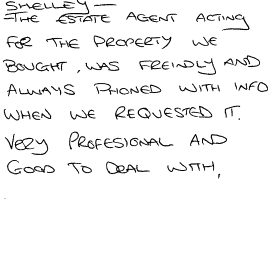 SHELLEY —
THE ESTATE AGENT ACTING
FOR THE PROPERTY WE
BOUGHT, WAS FREINDLY AND
ALWAYS PHONED WITH INFO
WHEN WE REQUESTED IT.
VERY PROFESIONAL AND
GOOD TO DEAL WITH,